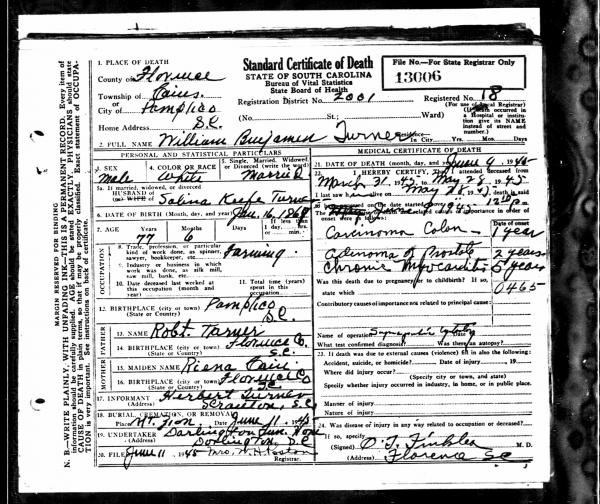 MARGIN RESERVED FOR BINDING
N. B.—WRITE PLAINLY, WITH UNFADING INK—THIS IS A PERMANENT RECORD. Every item of
information should be carefully supplied. AGE should be stated EXACTLY. PHYSICIANS should state
CAUSE OF DEATH in plain terms, so that it may be properly classified. Exact statement of OCCUPA-
TION is very important. See instructions on back of certificate.
1. PLACE OF DEATH
County of Florence
Township of
or
City of Pamplico
Home Address S.C.
Standard Certificate of Death
STATE OF SOUTH CAROLINA
Bureau of Vital Statistics
State Board of Health
Registration District No. 2001
(No. St.; Ward)
File No.—For State Registrar Only
13006
Registered No. 18
(For use of Local Registrar)
(If death occurred in
a Hospital or institu-
tion give its NAME
instead of street and
number.)
2. FULL NAME William Benjamen Turner In City Yrs. Mos. Days
PERSONAL AND STATISTICAL PARTICULARS
3. SEX Male
4. COLOR OR RACE White
5. Single, Married, Widowed,
or Divorced (write the word) Married
5a. If married, widowed, or divorced
HUSBAND of
(or) WIFE of Salina Keefe Turner
6. DATE OF BIRTH (Month, day, and year) Jan. 16, 1868
7. AGE Years Months Days If less than
1 day, hrs.
or min.
77 6
OCCUPATION
8. Trade, profession, or particular
kind of work done, as spinner,
sawyer, bookkeeper, etc. Farming
9. Industry or business in which
work was done, as silk mill,
saw mill, bank, etc.
10. Date deceased last worked at
this occupation (month and
year)
11. Total time (years)
spent in this
occupation
12. BIRTHPLACE (city or town) Pamplico
(State or Country) S.C.
FATHER
13. NAME Robt. Turner
14. BIRTHPLACE (city or town) Florence Co.
(State or Country) S.C.
MOTHER
15. MAIDEN NAME
16. BIRTHPLACE (city or town) Florence Co
(State or Country) SC
17. INFORMANT Herbert Turner
(Address) Scranton, S.C.
18. BURIAL, CREMATION, OR REMOVAL
Place Mt. Zion Date June 11 1945
19. UNDERTAKER Darlington Fun. Home
(Address) Darlington, S.C.
20. FILED June 11 1945 Mrs. W. H. Poston
Registrar.
MEDICAL CERTIFICATE OF DEATH
21. DATE OF DEATH (month, day, and year) June 9, 1945
22. I HEREBY CERTIFY, That I attended deceased from
March 31, 1945, to May 28, 1945
I last saw h alive on May 28, 45, death is said
to have occurred on the date stated above, at
The principal cause of death and related causes of importance in order of
onset were as follows: Date of onset
Carcinoma Colon 1 year
Adinoma of Prostate 2 years
Chronic Myocarditis 5 years
Was this death due to pregnancy or childbirth? If so,
state which 0465
Contributory causes of importance not related to principal cause:
Name of operation Date of
What test confirmed diagnosis? Was there an autopsy?
23. If death was due to external causes (violence) fill in also the following:
Accident, suicide, or homicide? Date of injury 19
Where did injury occur?
(Specify city or town, and state)
Specify whether injury occurred in industry, in home, or in public place
Manner of injury
Nature of injury
24. Was disease or injury in any way related to occupation of deceased?
If so, specify
(Signed) M. D.
(Address) Florence SC